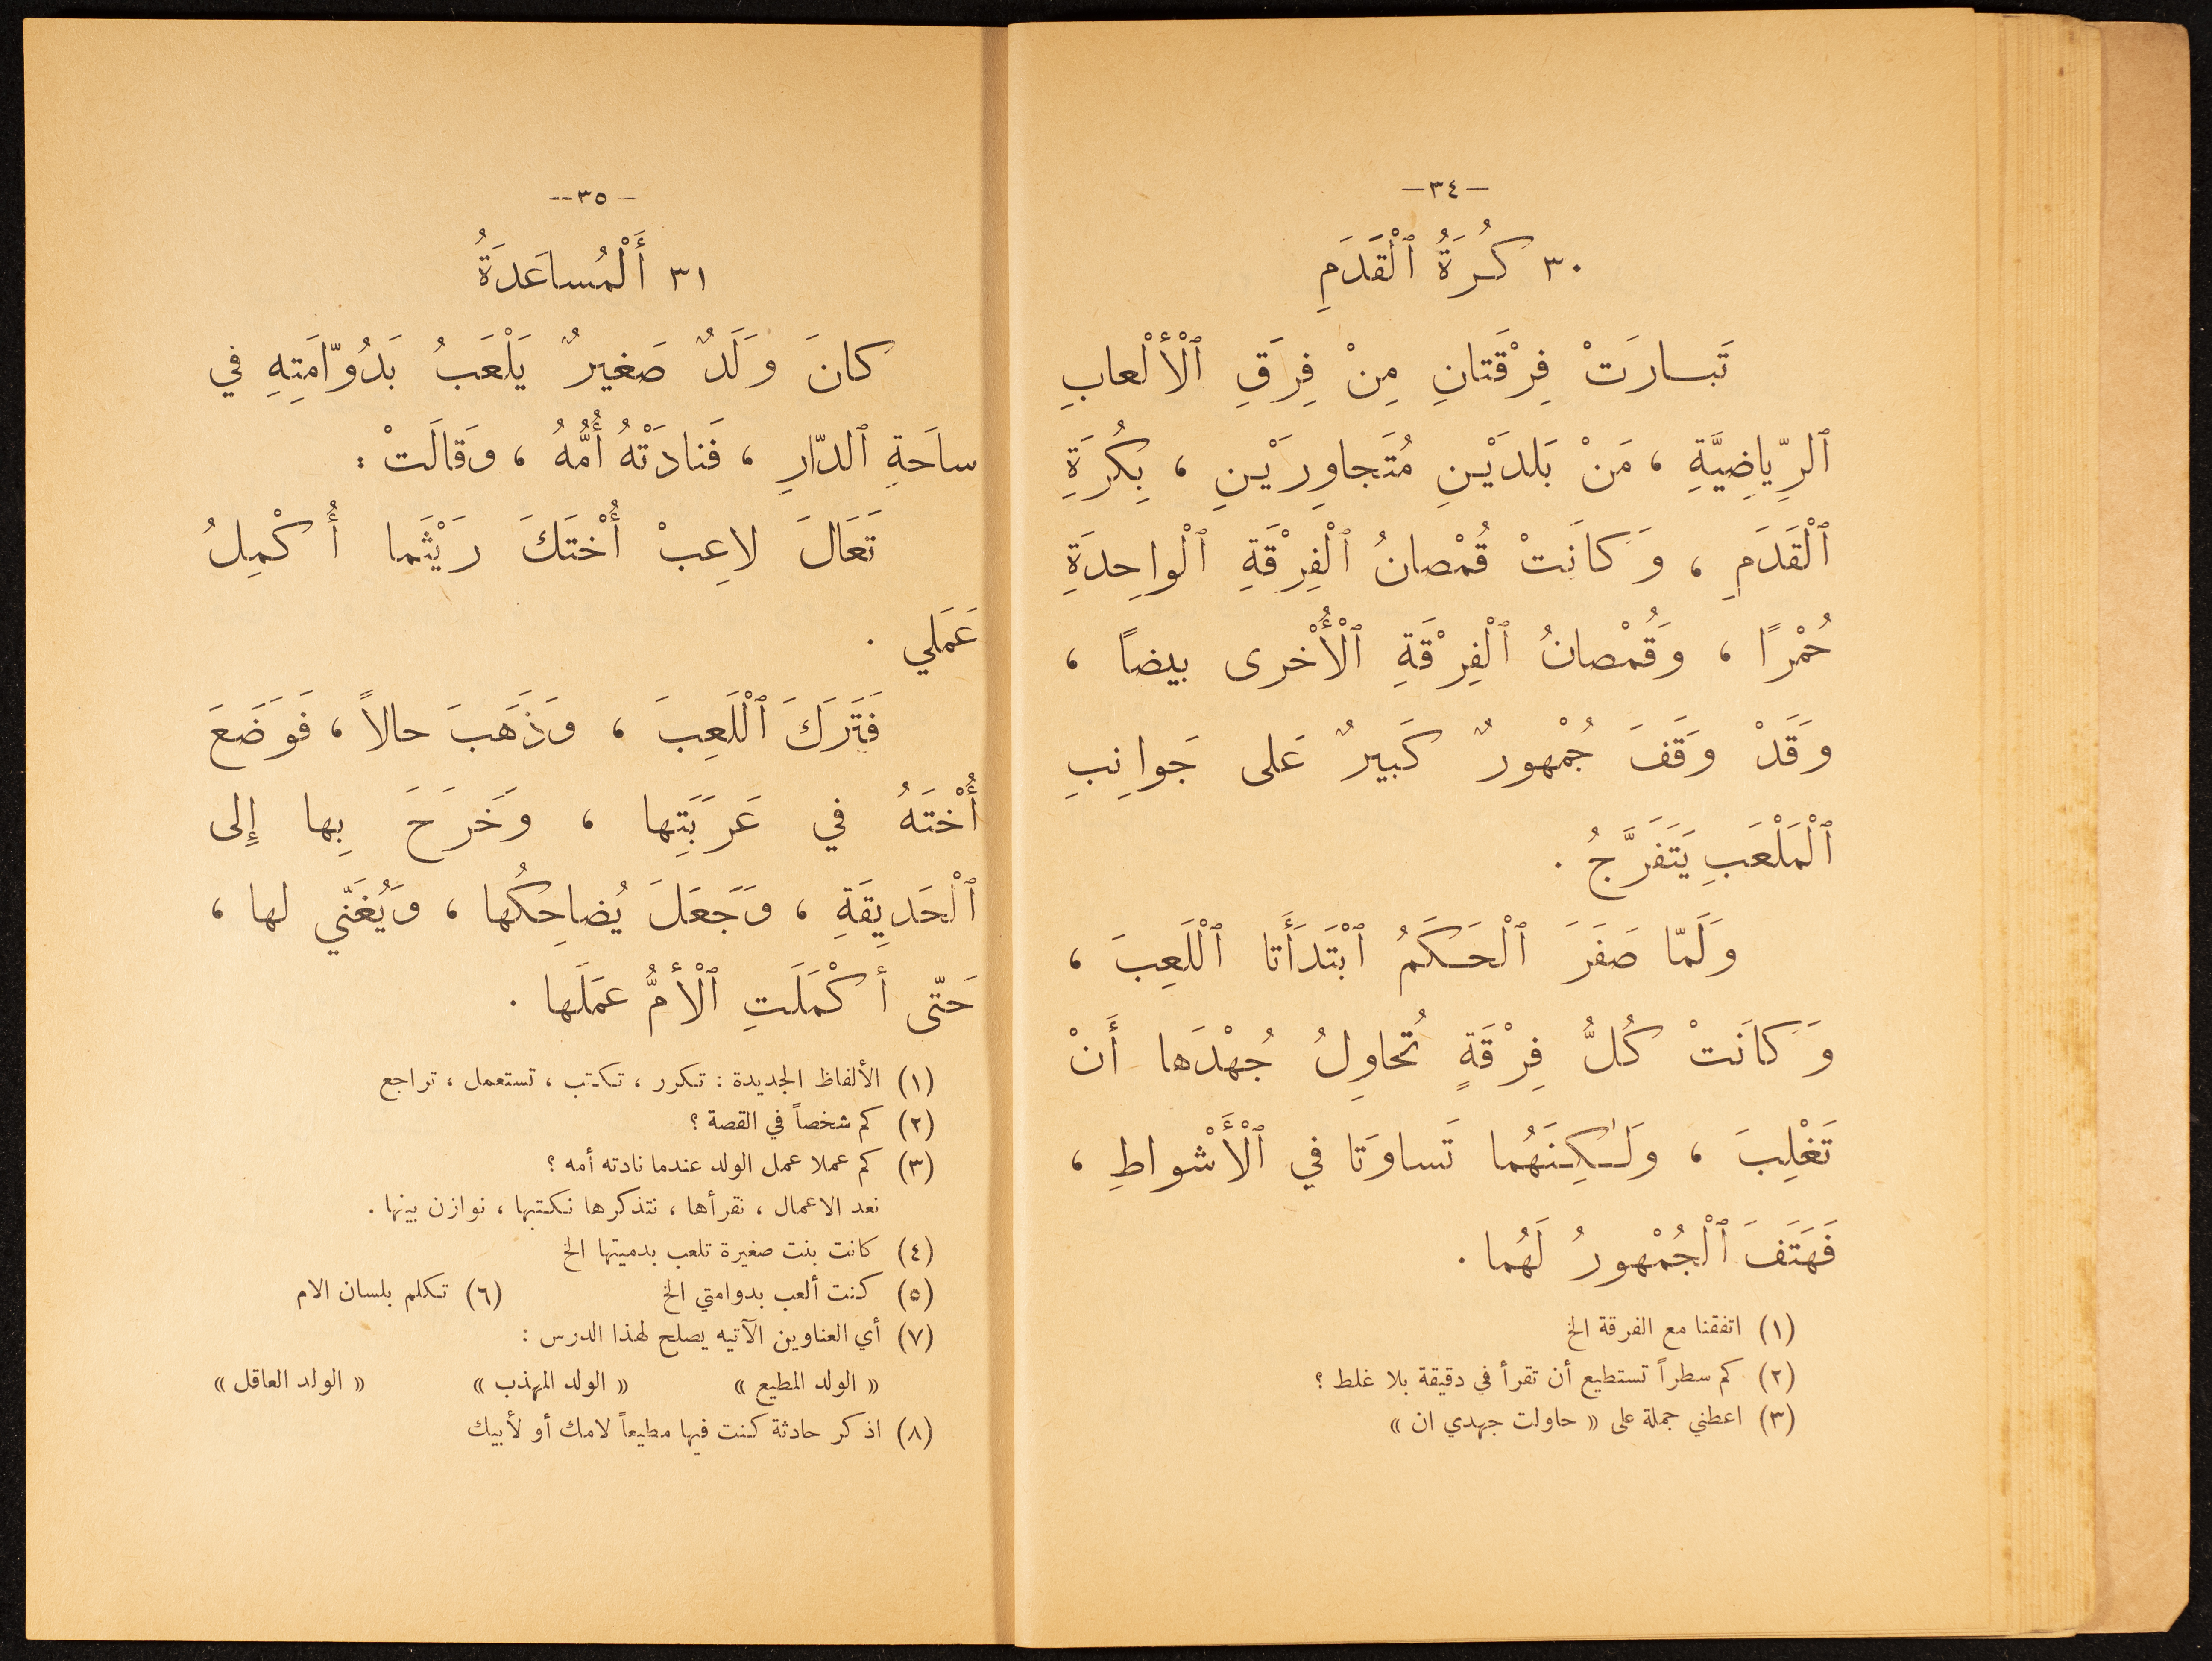 —٣٤—
٣٠ كُرَةُ ٱلْقَدَمِ
تَبسارَتْ فِرْقَتانِ مِنْ فِرَقِ ٱلْأَلْعابِ
ٱلرِّياضِيَّةِ ، مَنْ بَلَدَيْنِ مُتَجاوِرَيْنِ ، بِكُرَةِ
ٱلْقَدَمِ ، وَكانَتْ قُمْصانُ ٱلْفِرْقَةِ ٱلْواحِدَةِ
حُمْرًا ، وَقُمْصانُ ٱلْفِرْقَةِ ٱلْأُخْرى بيضاً ،
وَقَدْ وَقَفَ جُمْهورٌ كَبيرٌ عَلى جَوانِبِ
ٱلْمَلْعَبِ يَتَفَرَّجُ .
وَلَمّا صَفَرَ ٱلْحَكَمُ ٱبْتَدَأَتا ٱلْلَعِبَ ،
وَكانَتْ كُلُّ فِرْقَةٍ تُحاوِلُ جُهْدَها أَنْ
تَغْلِبَ ، وَلَـٰكِنَهُما تَساوَتا في ٱلْأَشْواطِ ،
فَهَتَفَ ٱلْجُمْهورُ لَهُما .
(١) اتفقنا مع الفرقة الخ
(٢) كم سطراً تستطيع أن تقرأ في دقيقة بلا غلط ؟
(٣) اعطني جملة على « حاولت جهدي ان »
—٣٥—
٣١ أَلْمُساعَدَةُ
كانَ وَلَدٌ صَغيرٌ يَلْعَبُ بَدُوّامَتِهِ في
ساحَةِ ٱلدّارِ ، فَنادَتْهُ أُمُّهُ ، وَقالَتْ :
تَعَالَ لاعِبْ أُخْتَكَ رَيْثَما أُكْمِلُ
عَمَلي .
فَتَرَكَ ٱلْلَعِبَ ، وَذَهَبَ حالاً ، فَوَضَعَ
أُخْتَهُ في عَرَبَتِها ، وَخَرَحَ بِها إِلى
ٱلْحَديقَةِ ، وَجَعَلَ يُضاحِكُها ، وَيُغَنّي لها ،
حَتّى أَكْمَلَتِ ٱلْأُمُّ عمَلَها .
(١) الألفاظ الجديدة : تكرر ، تكتب ، تستعمل ، تراجع
(٢) كم شخصاً في القصة ؟
(٣) كم عملا عمل الولد عندما نادته أمه ؟
نعد الاعمال ، نقرأها ، نتذكرها نكتبها ، نوازن بينها .
(٤) كانت بنت صغيرة تلعب بدميتها الخ
(٥) كنت ألعب بدوامتي الخ (٦) تكلم بلسان الام
(٧) أي العناوين الآتيه يصلح لهذا الدرس :
« الولد المطيع » « الولد المهذب » « الولد العاقل »
(٨) اذكر حادثة كنت فيها مطيعاً لامك أو لأبيك